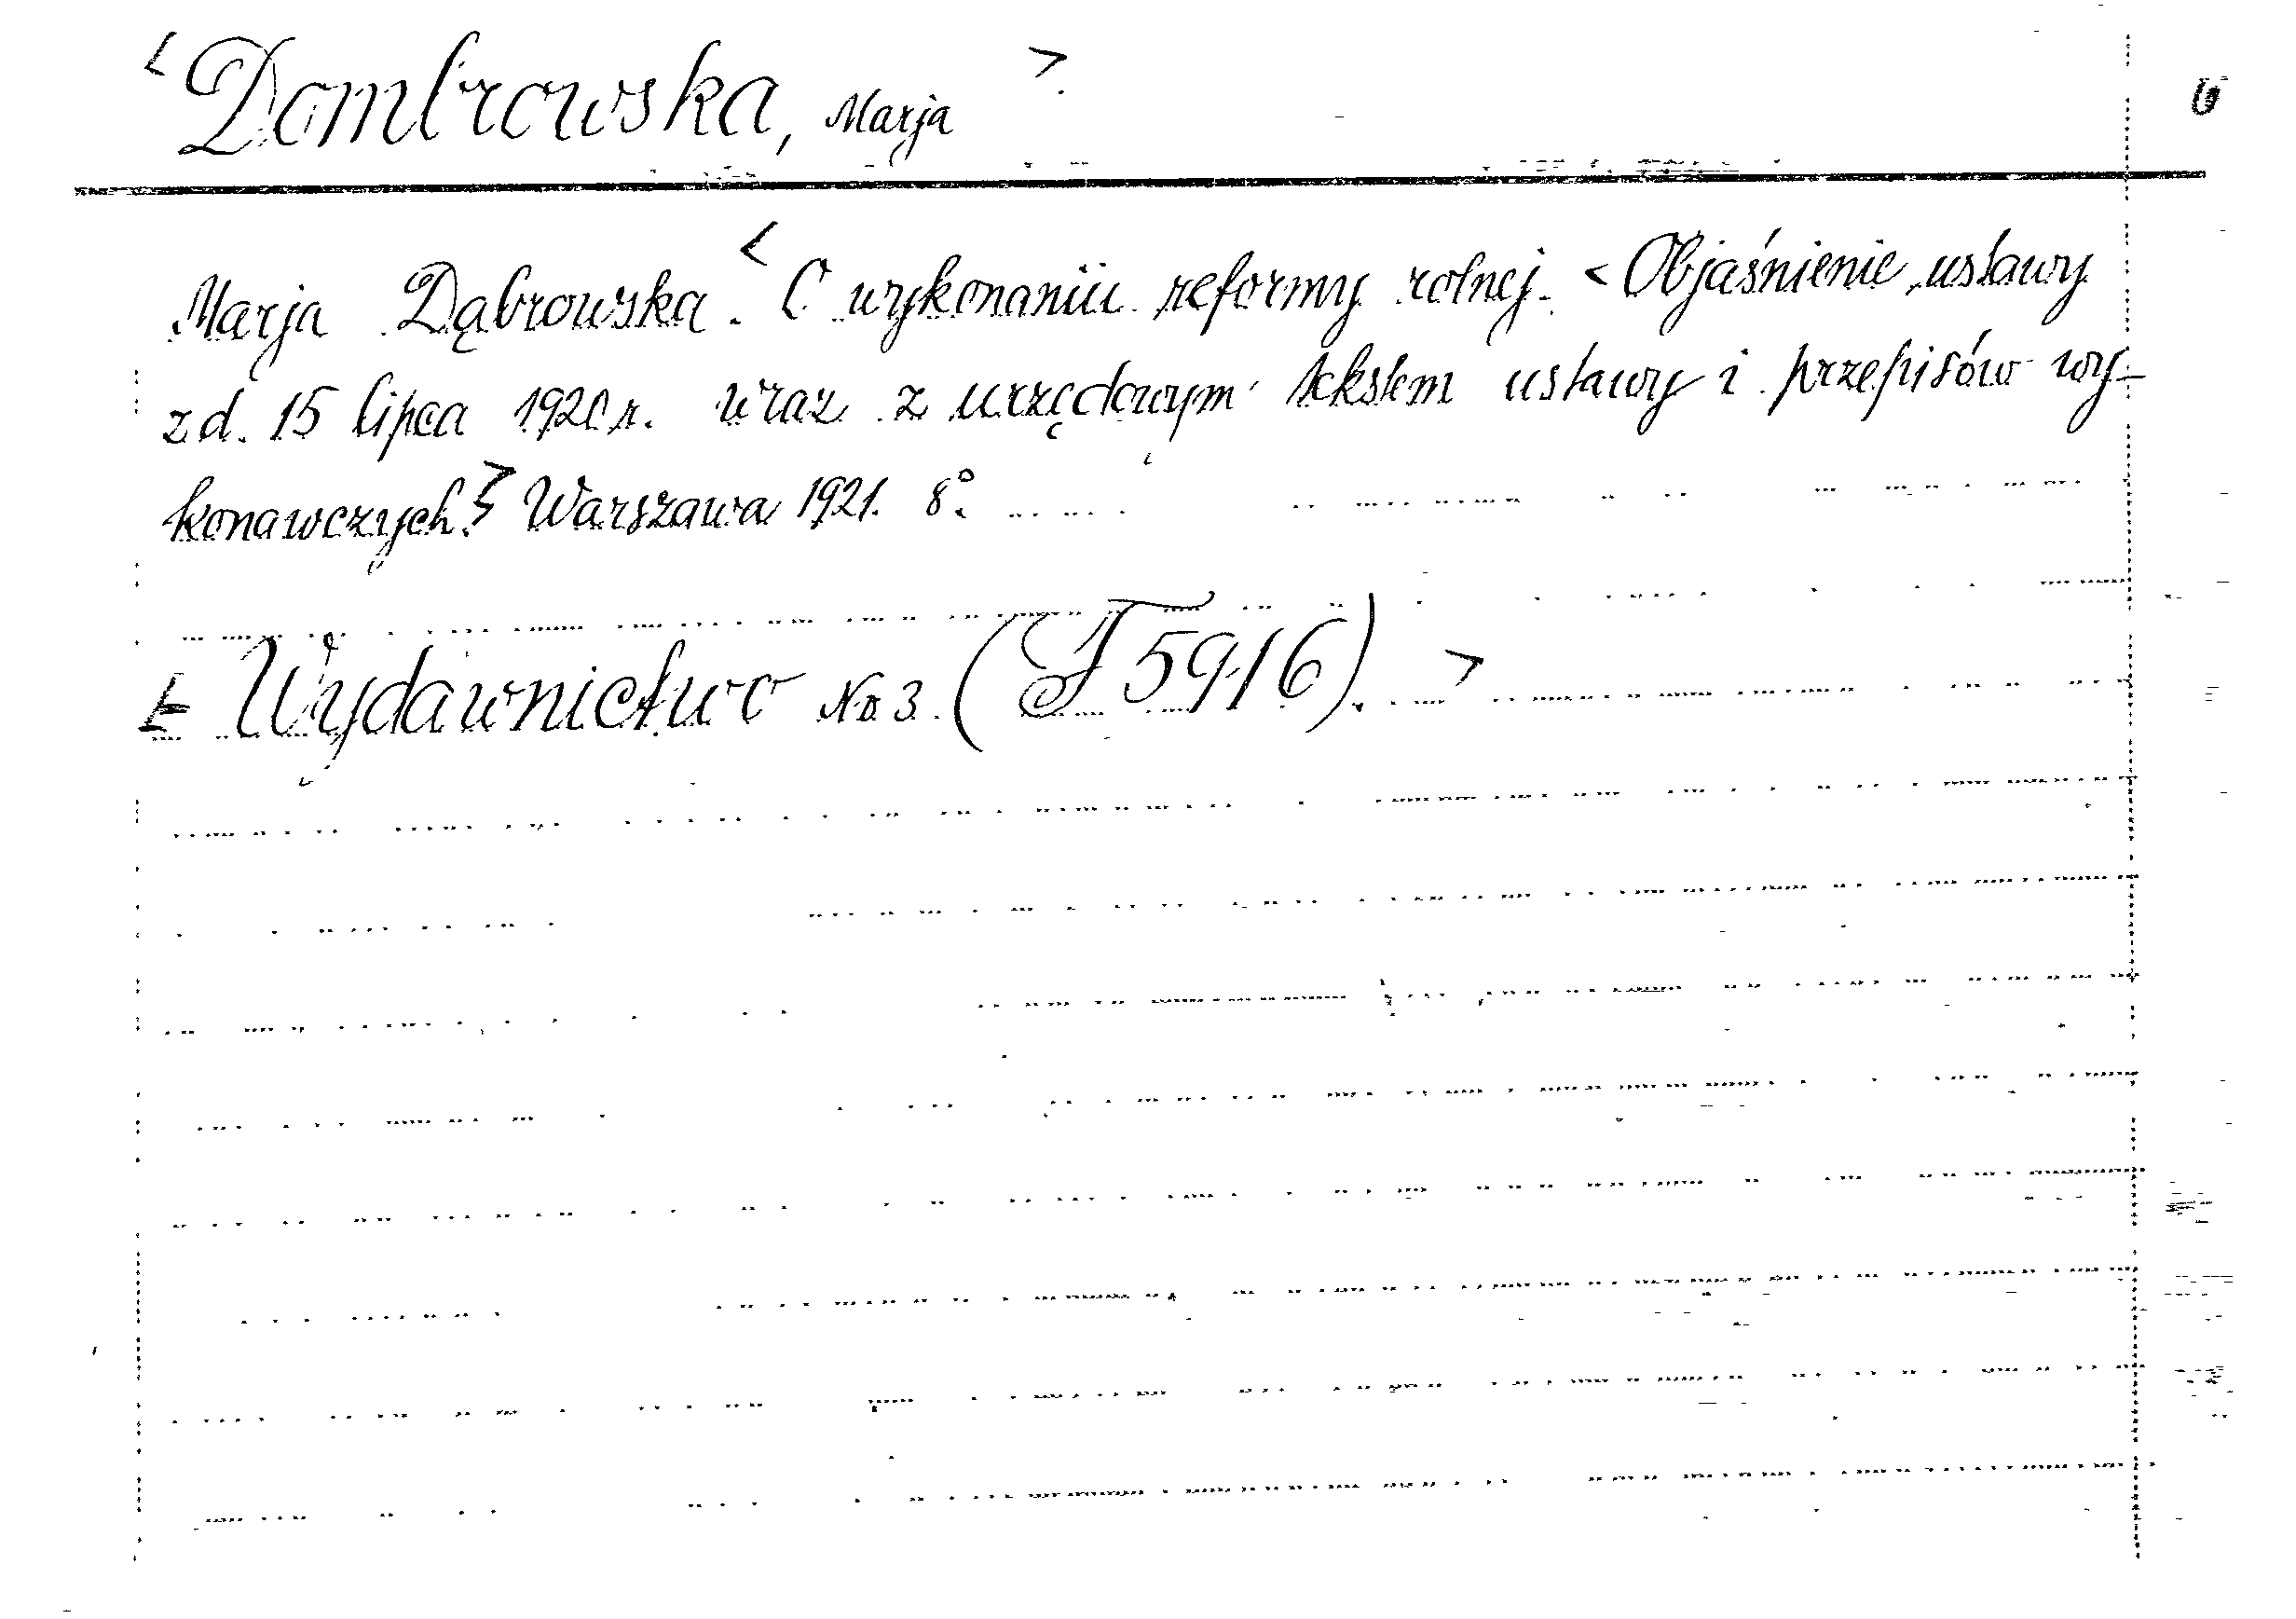 <Dombrowska, Marja>
Marja Dąbrowska. <O wykonaniu reformy rolnej. <Objaśnienie ustawy
z d. 15 lipca 1920 r. wraz z urzędowym tekstem ustawy i przepisów wy-
konawczych.> Warszawa 1921. 8°.
< Wydawnictwo No 3. (T 5916). >